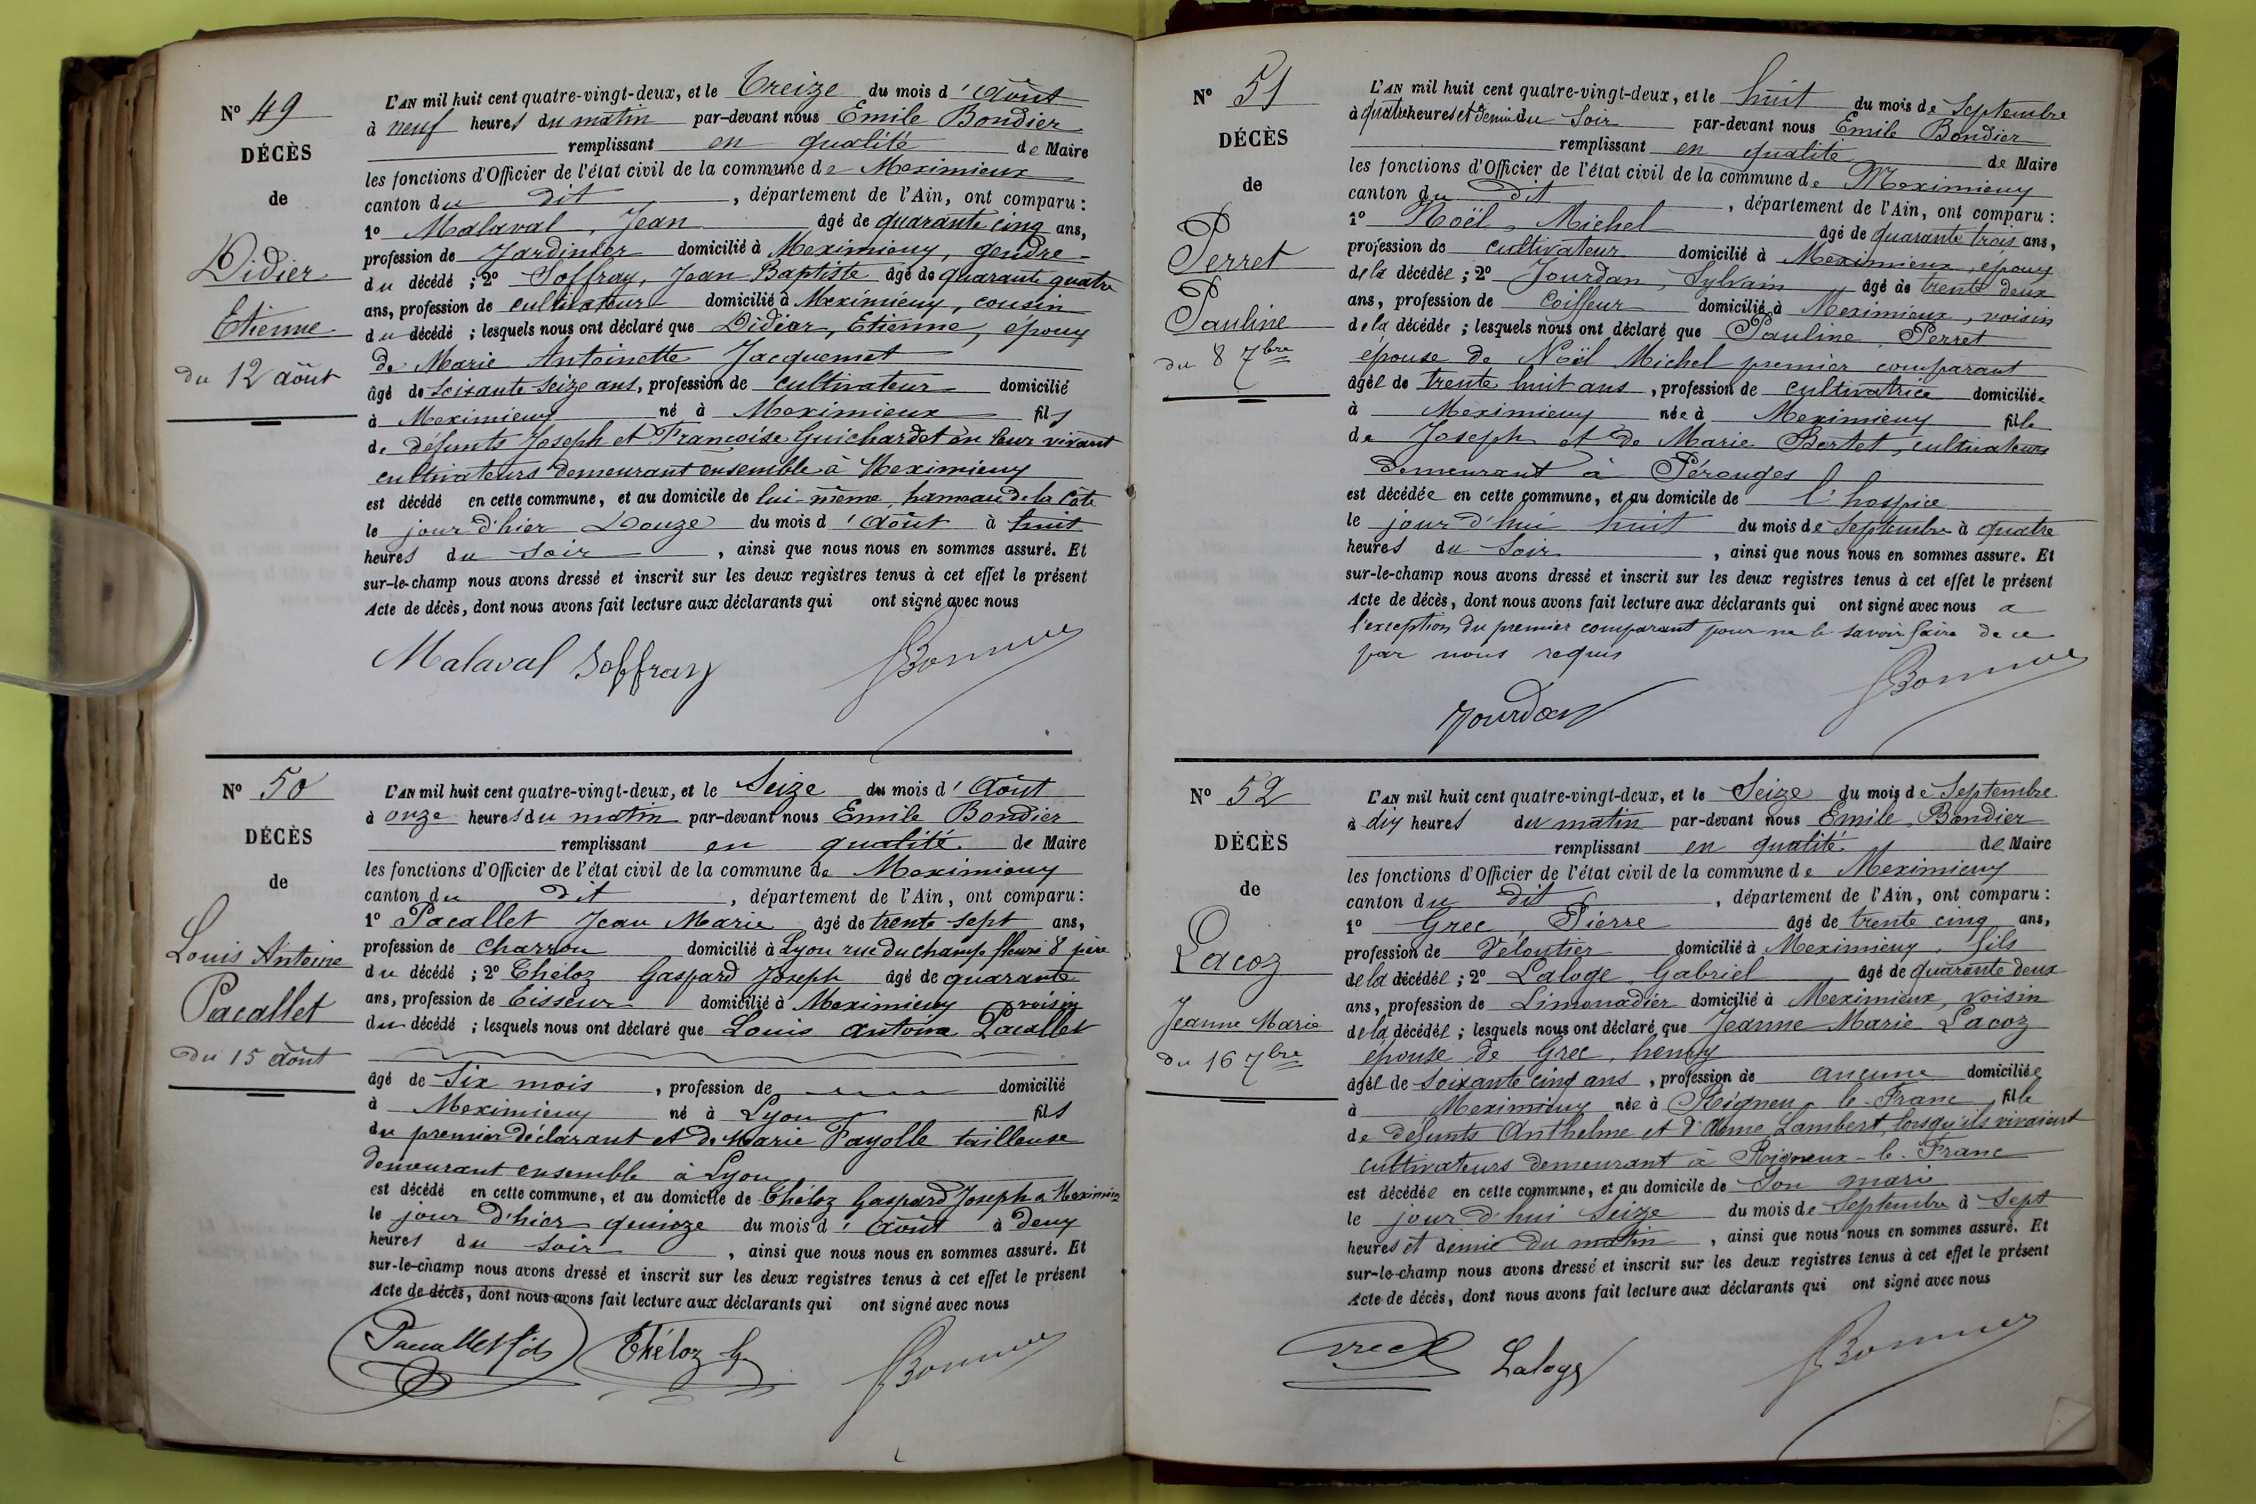 N° 49
DÉCÈS
de
Didier
Etienne
du 12 août
L'AN mil huit cent quatre-vingt-deux, et le Treize du mois d'août
à neuf heures du matin par-devant nous Emile Bondier
remplissant en qualité de Maire
les fonctions d'Officier de l'état civil de la commune de Meximieux
canton du dit, département de l'Ain, ont comparu :
1° Malaval, Jean âgé de quarante cinq ans,
profession de Jardinier domicilié à Meximieux, gendre
du décédé ; 2° Soffray, Jean Baptiste âgé de quarante quatre
ans, profession de cultivateur domicilié à Meximieux, cousin
du décédé ; lesquels nous ont déclaré que Didier, Etienne, époux
de Marie Antoinette Jacquemet
âgé de soixante seize ans, profession de cultivateur domicilié
à Meximieux né à Meximieux fils
de défunts Joseph et Françoise Guichardet en leur vivant
cultivateurs demeurant ensemble à Meximieux
est décédé en cette commune, et au domicile de lui-même, hameau de la Côte
le jour d'hier Douze du mois d'août à huit
heures du soir, ainsi que nous nous en sommes assuré. Et
sur-le-champ nous avons dressé et inscrit sur les deux registres tenus à cet effet le présent
Acte de décès, dont nous avons fait lecture aux déclarants qui ont signé avec nous
Malaval Soffray
N° 50
DÉCÈS
de
Louis Antoine
Pacallet
du 15 août
L'AN mil huit cent quatre-vingt-deux, et le Seize du mois d'août
à onze heures du matin par-devant nous Emile Bondier
remplissant en qualité de Maire
les fonctions d'Officier de l'état civil de la commune de Meximieux
canton du dit, département de l'Ain, ont comparu :
1° Pacallet Jean Marie âgé de trente sept ans,
profession de charron domicilié à Lyon rue du champ fleuri 8 père
du décédé ; 2° Théloz Gaspard Joseph âgé de quarante
ans, profession de Tisseur domicilié à Meximieux voisin
du décédé ; lesquels nous ont déclaré que Louis antoine Pacallet
âgé de Six mois, profession de domicilié
à Meximieux né à Lyon fils
du premier déclarant et de Marie Fayolle tailleuse
demeurant ensemble à Lyon
est décédé en cette commune, et au domicile de Théloz Gaspard Joseph à Meximieux
le jour d'hier quinze du mois d'août à deux
heures du soir, ainsi que nous nous en sommes assuré. Et
sur-le-champ nous avons dressé et inscrit sur les deux registres tenus à cet effet le présent
Acte de décès, dont nous avons fait lecture aux déclarants qui ont signé avec nous
Pacallet fils Théloz G
N° 51
DÉCÈS
de
Perret
Pauline
du 8 7bre
L'AN mil huit cent quatre-vingt-deux, et le huit du mois de Septembre
à quatre heures et demie du Soir par-devant nous Emile Bondier
remplissant en qualité de Maire
les fonctions d'Officier de l'état civil de la commune de Meximieux
canton du dit, département de l'Ain, ont comparu :
1° Noël, Michel âgé de quarante trois ans,
profession de cultivateur domicilié à Meximieux, époux
de la décédée ; 2° Jourdan, Sylvain âgé de trente deux
ans, profession de Coiffeur domicilié à Meximieux, voisin
de la décédée ; lesquels nous ont déclaré que Pauline Perret
épouse de Noël Michel premier comparant
âgée de trente huit ans, profession de cultivatrice domiciliée
à Meximieux née à Meximieux fille
de Joseph et de Marie Bertet, cultivateurs
demeurant à Pérouges
est décédée en cette commune, et au domicile de l'hospice
le jour d'hui huit du mois de Septembre à quatre
heures du Soir, ainsi que nous nous en sommes assuré. Et
sur-le-champ nous avons dressé et inscrit sur les deux registres tenus à cet effet le présent
Acte de décès, dont nous avons fait lecture aux déclarants qui ont signé avec nous a
l'exception du premier comparant pour ne le savoir faire de ce
par nous requis
Jourdan
N° 52
DÉCÈS
de
Lacoz
Jeanne Marie
du 16 7bre
L'AN mil huit cent quatre-vingt-deux, et le Seize du mois de Septembre
à dix heures du matin par-devant nous Emile Bondier
remplissant en qualité de Maire
les fonctions d'Officier de l'état civil de la commune de Meximieux
canton du dit, département de l'Ain, ont comparu :
1° Grec, Pierre âgé de trente cinq ans,
profession de Veloutier domicilié à Meximieux, fils
de la décédée ; 2° Laloge, Gabriel âgé de quarante deux
ans, profession de Limonadier domicilié à Meximieux, voisin
de la décédée ; lesquels nous ont déclaré que Jeanne Marie Lacoz
épouse de Grec, henry
âgée de soixante cinq ans, profession de aucune domiciliée
à Meximieux née à Rigneux-le-Franc, fille
de défunts Anthelme et d'Anne Lambert, lorsqu'ils vivaient
cultivateurs demeurant à Rigneux-le-Franc
est décédée en cette commune, et au domicile de Son mari
le jour d'hui Seize du mois de Septembre à Sept
heures et demie du matin, ainsi que nous nous en sommes assuré. Et
sur-le-champ nous avons dressé et inscrit sur les deux registres tenus à cet effet le présent
Acte de décès, dont nous avons fait lecture aux déclarants qui ont signé avec nous
Laloge